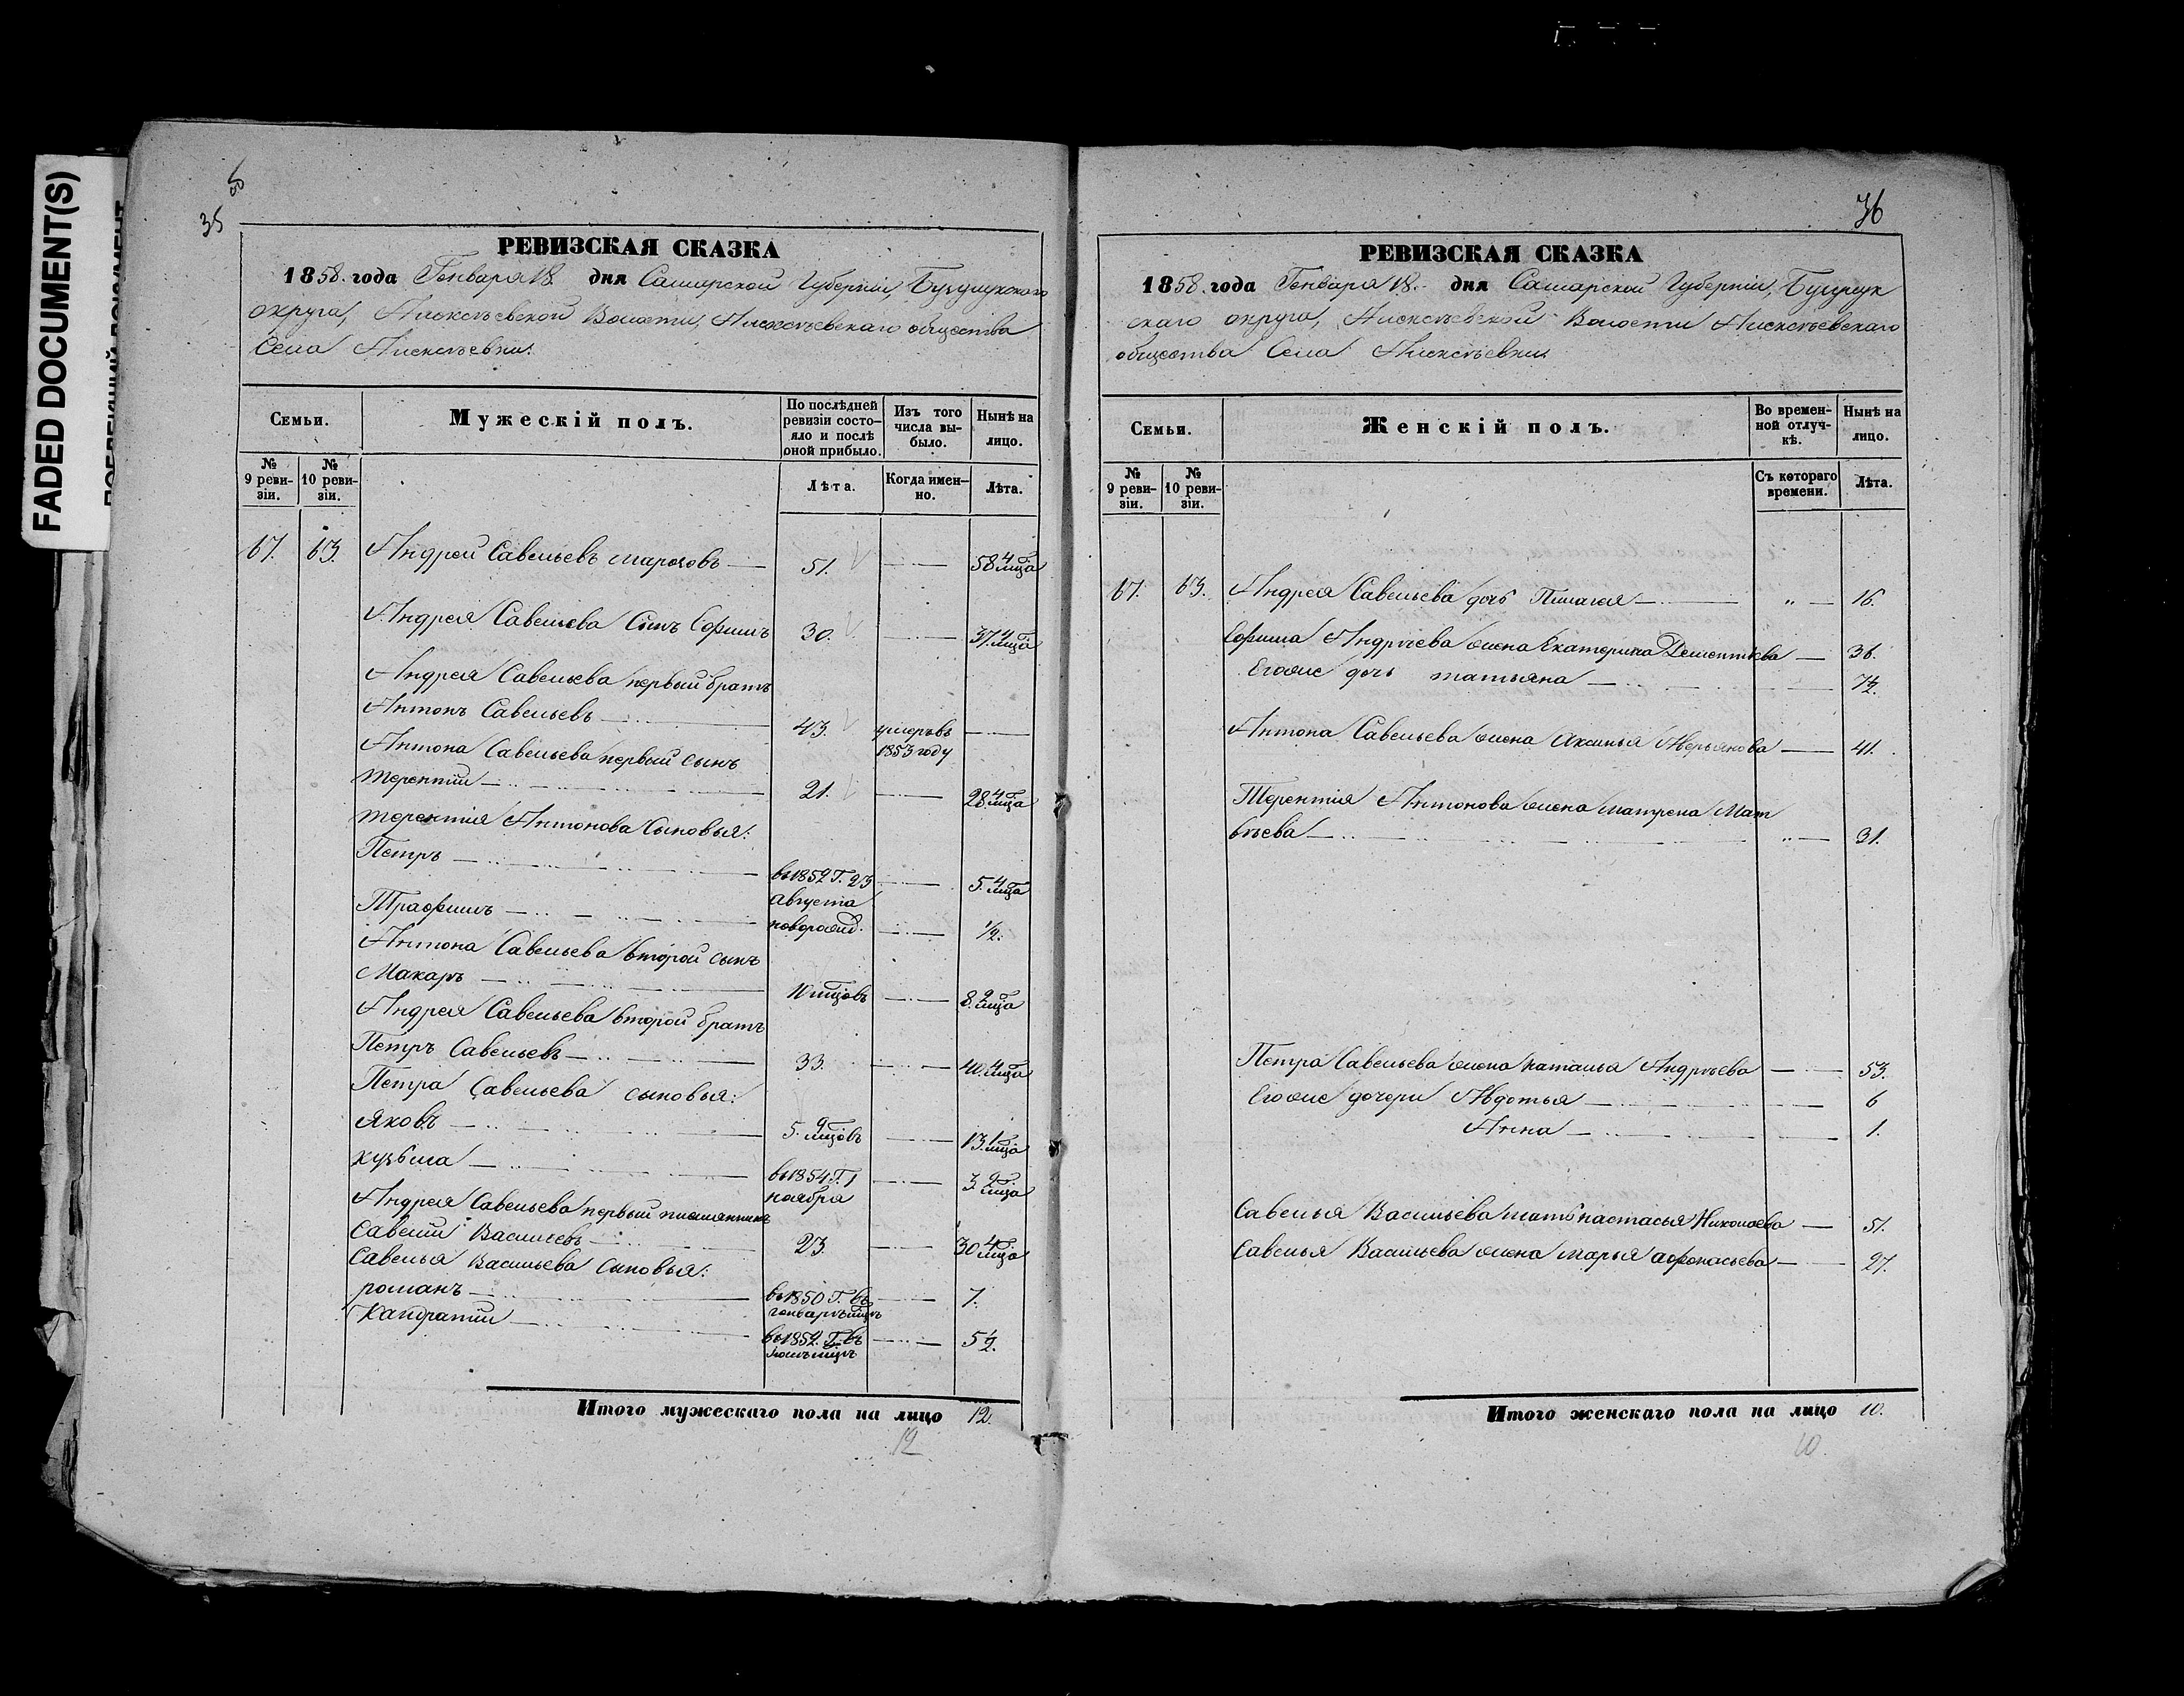 FADED DOCUMENT(S)
35
РЕВИЗСКАЯ СКАЗКА
1858. года Генваря 18. дня Самарской Губерніи, Бузулукского
округа, Алексѣевской Волости, Алексѣевскаго общества
Села Алексѣевки.
Семьи.
Мужескій полъ.
По послѣдней
ревизіи состо-
яло и послѣ
оной прибыло.
Изъ того
числа вы-
было.
Нынѣ на
лицо.
№
9 реви-
зіи.
№
10 реви-
зіи.
Лѣта.
Когда имен-
но.
Лѣта.
67. 63. Андрей Савельевъ 51. 58 4 мца
Андрея Савельева Сынъ Ефимъ 30. 37
Андрея Савельева первый братъ
Антонъ Савельевъ 43. умеръ въ
1853 году
Антона Савельева первый сынъ
терентій 21. 28 4 мца
терентія Антонова Сыновья:
Петръ въ 1852 Г. 23 5. 4 мца
августа
Трафимъ новорожд. 1/2.
Антона Савельева второй сынъ
Макаръ 10 мцовъ 8. 2 мца
Андрея Савельева второй братъ
Петръ Савельевъ 33. 40. 4 мца
Петра Савельева сыновья:
яковъ 5. 9 мцовъ 13. 1 мца
кузьма въ 1854 Г. 1 3 2 мца
ноября
Андрея Савельева первый племянникъ
Савелій Васильевъ 23. 30 4 мца
Савелья Васильева Сыновья:
романъ въ 1850 Г. въ 7.
генварѣ мцѣ
Кандратій въ 1852. Г. въ 5 1/2.
мцѣ
Итого мужескаго пола на лицо 12.
12
36
РЕВИЗСКАЯ СКАЗКА
1858. года Генваря 18. дня Самарской Губерніи, Бузулук
скаго округа, Алексѣевской Волости Алексѣевскаго
общества Села Алексѣевки
Семьи.
Женскій полъ.
Во времен-
ной отлуч-
кѣ.
Нынѣ на
лицо.
№
9 реви-
зіи.
№
10 реви-
зіи.
Съ котораго
времени.
Лѣта.
67. 63. Андрея Савельева дочь Пилагея " 16.
Ефима Андрѣева жена Екатерина Дементьева 36.
Егоже дочь татьяна 7 1/2.
Антона Савельева жена Аксинья 41.
Терентія Антонова жена матрена Мат
вѣева " 31.
Петра Савельева жена наталья Андрѣева 53.
Егоже дочери Авдотья 6
Анна 1.
Савелья Васильева мать настасья Николаева 51.
Савелья Васильева жена марья афонасьева 27.
Итого женскаго пола на лицо 10.
10.